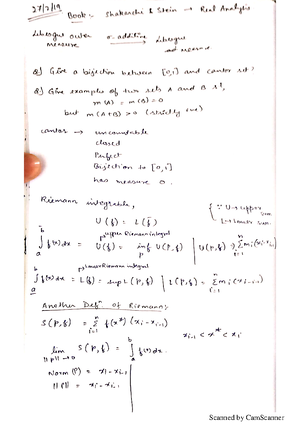 27/7/19
Book:- Shakarchi & Stein → Real Analysis
Lebesgue outer measure σ-additive → Lebesgue measure
Q) Give a bijection between [0,1] and cantor set?
Q) Give examples of two sets A and B s.t.
m(A) = m(B) = 0
but m(A+B) > 0 (strictly +ve)
cantor → uncountable
closed
Perfect
Bijection to [0,1]
has measure 0.
Riemann integrable,
U(f) = L(f)
upper Riemann integral
∫ₐᵇ f(x)dx = U(f) = inf U(P,f)
lower Riemann integral
∫ₐᵇ f(x)dx = L(f) = sup L(P,f) | L(P,f) = Σ mᵢ(xᵢ-xᵢ₋₁)
Another Defⁿ of Riemann:-
S(P,f) = Σ f(x*)(xᵢ-xᵢ₋₁)
xᵢ₋₁ < x* < xᵢ
lim ||P||→0 S(P,f) = ∫ₐᵇ f(x)dx.
Norm(P) = xᵢ-xᵢ₋₁
||P|| = xᵢ-xᵢ₋₁
Scanned by CamScanner